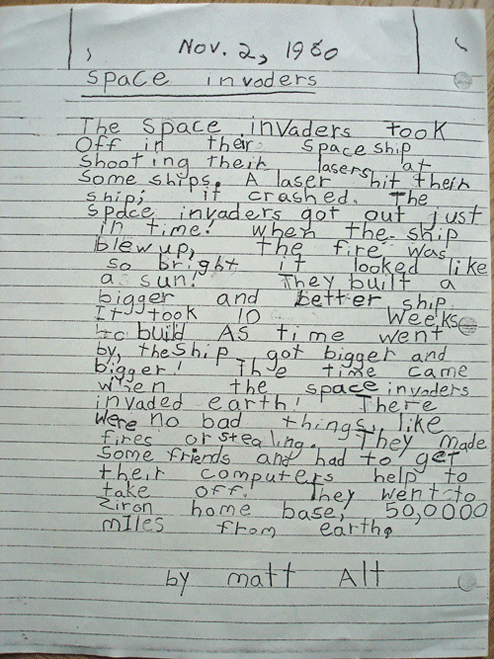 Nov. 2, 1980
Space invaders
The Space invaders took
Off in their Spaceship
Shooting their lasers at
Some ships. A laser hit their
ship; it crashed. The
Space invaders got out just
in time! when the ship
blew up, the fire was
so bright it looked like
a sun! They built a
bigger and better ship.
It took 10 Weeks
to build AS time went
by, the ship got bigger and
bigger! The time came
when the space invaders
invaded earth! There
were no bad things, like
fires or stealing. They made
Some friends and had to get
their computers help to
take off. They went to
Ziron home base, 50,0000
miles from earth.
by matt Alt